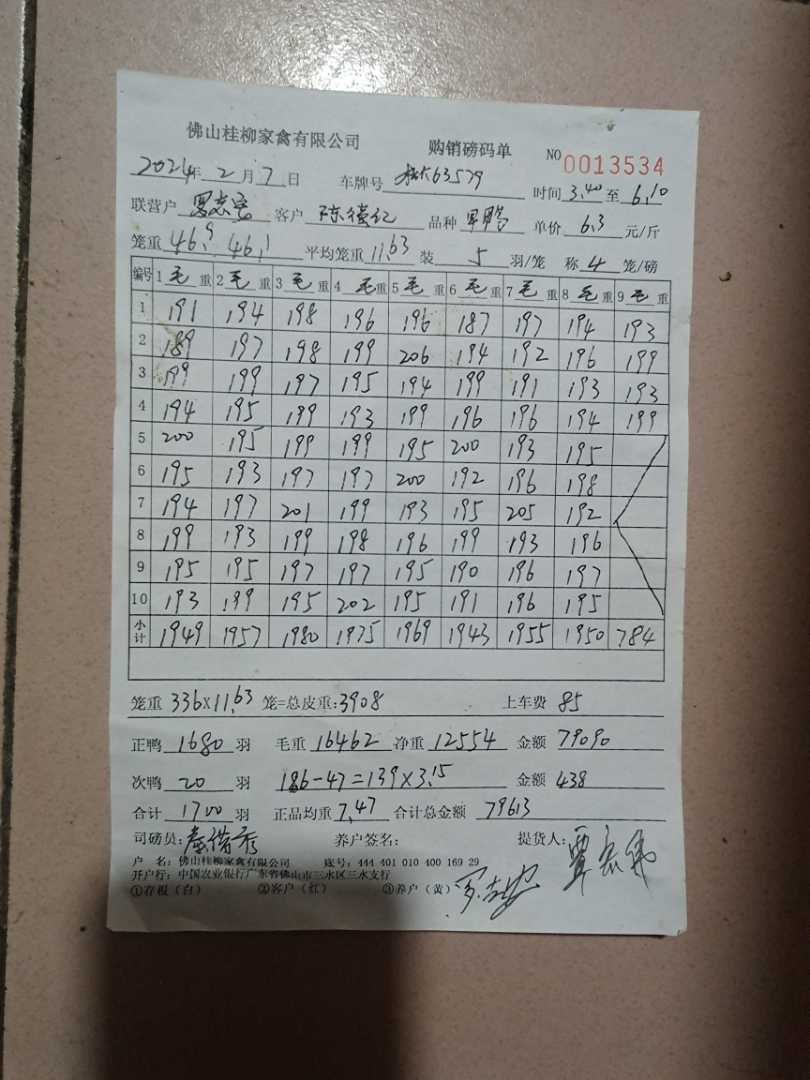 佛山桂柳家禽有限公司 购销磅码单 NO 0013534
2024年 2月 7日 车牌号 63579 时间 3.40 至 6.10
联营户 罗志安 客户 陈 记 品种 单价 6.3 元/斤
笼重 46.9 46.1 平均笼重 11.63 装 5 羽/笼 称 4 笼/磅
编号 1 毛 重 2 毛 重 3 毛 重 4 毛 重 5 毛 重 6 毛 重 7 毛 重 8 毛 重 9 毛 重
1 191 194 198 196 196 187 197 194 193
2 189 197 198 199 206 194 192 196 199
3 199 199 197 195 194 199 191 193 193
4 194 195 199 193 199 196 196 194 199
5 200 195 199 199 195 200 193 195
6 195 193 197 197 200 192 196 198
7 194 197 201 199 193 195 205 192
8 199 193 199 198 196 199 193 196
9 195 195 197 197 195 190 196 197
10 193 199 195 202 195 191 196 195
小计 1949 1957 1980 1975 1969 1943 1955 1950 784
笼重 336×11.63 笼=总皮重:3908 上车费 85
正鸭 1680 羽 毛重 16462 净重 12554 金额 79090
次鸭 20 羽 186-47=139×3.15 金额 438
合计 1700 羽 正品均重 7.47 合计总金额 79613
司磅员: 养户签名: 提货人:
户 名: 佛山桂柳家禽有限公司 账号: 444 401 010 400 169 29
开户行: 中国农业银行广东省佛山市三水区三水支行
①存根(白) ②客户(红) ③养户(黄)